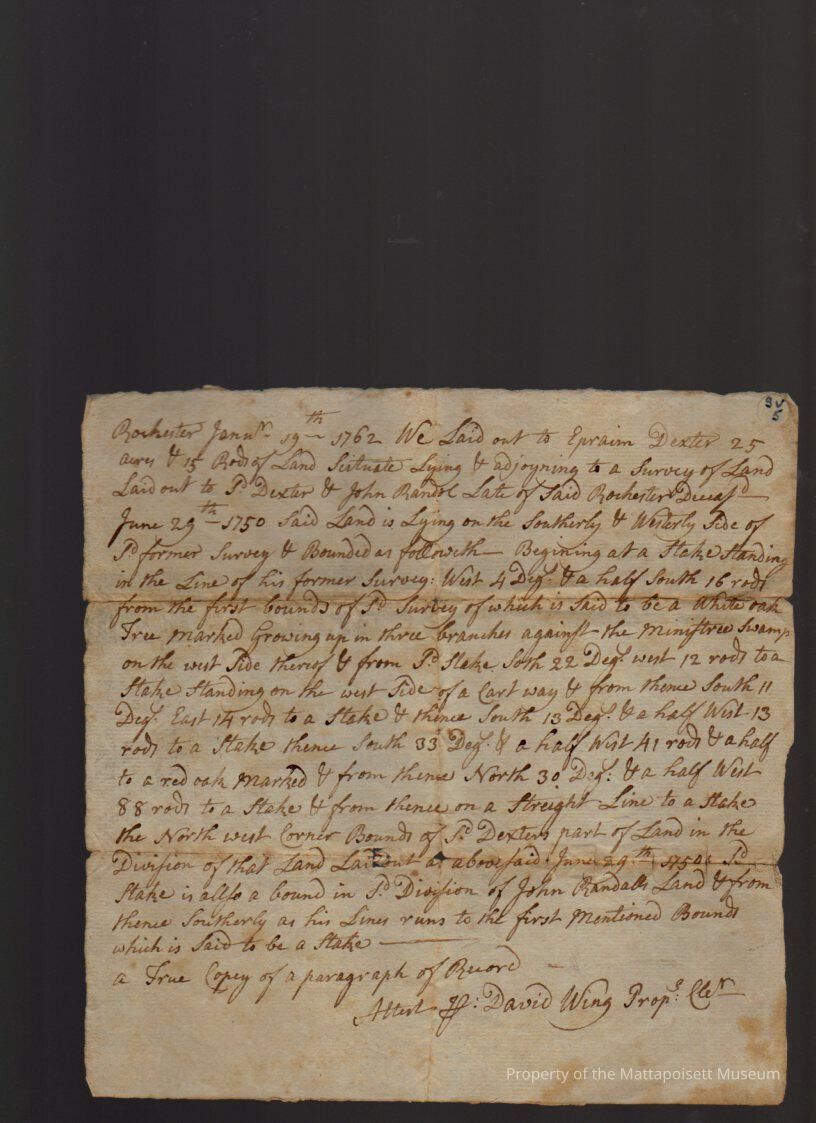 3v
5
Rochester Janur 19th 1762 We Laid out to Epraim Dexter 25
acres & 15 Rods of Land Scituate Lying & adjoyning to a Survey of Land
Laid out to Sd Dexter & John Randol Late of Said Rochester Deceasd
June 29th 1750 Said Land is Lying on the Southerly & Westerly Side of
Sd former Survey & Bounded as followeth Begining at a Stake Standing
in the Line of his former Survey: West 4 Degs. & a half South 16 rods
from the first bounds of Sd Survey of which is Said to be a White oak
Tree Marked Growing up in three branches against the Ministree Swamp
on the west Side thereof & from Sd Stake Soth 22 Degs. west 12 rods to a
Stake Standing on the west Side of a Cart way & from thence South 11
Degs. East 14 rods to a Stake & thence South 13 Degs. & a half West 13
rods to a Stake thence South 33 Degs. & a half West 41 rods & a half
to a red oak Marked & from thence North 30 Degs: & a half West
88 rods to a Stake & from thence on a Streight Line to a Stake
the North west Corner Bounds of Sd Dexters part of Land in the
Division of that Land Laid out as abovesaid June 29th 1750: Sd
Stake is allso a bound in Sd Division of John Randalls Land & from
thence Southerly as his Lines runs to the first Mentioned Bounds
which is Said to be a Stake
a True Copey of a paragraph of Record
Attest P: David Wing Props: Cler
Property of the Mattapoisett Museum